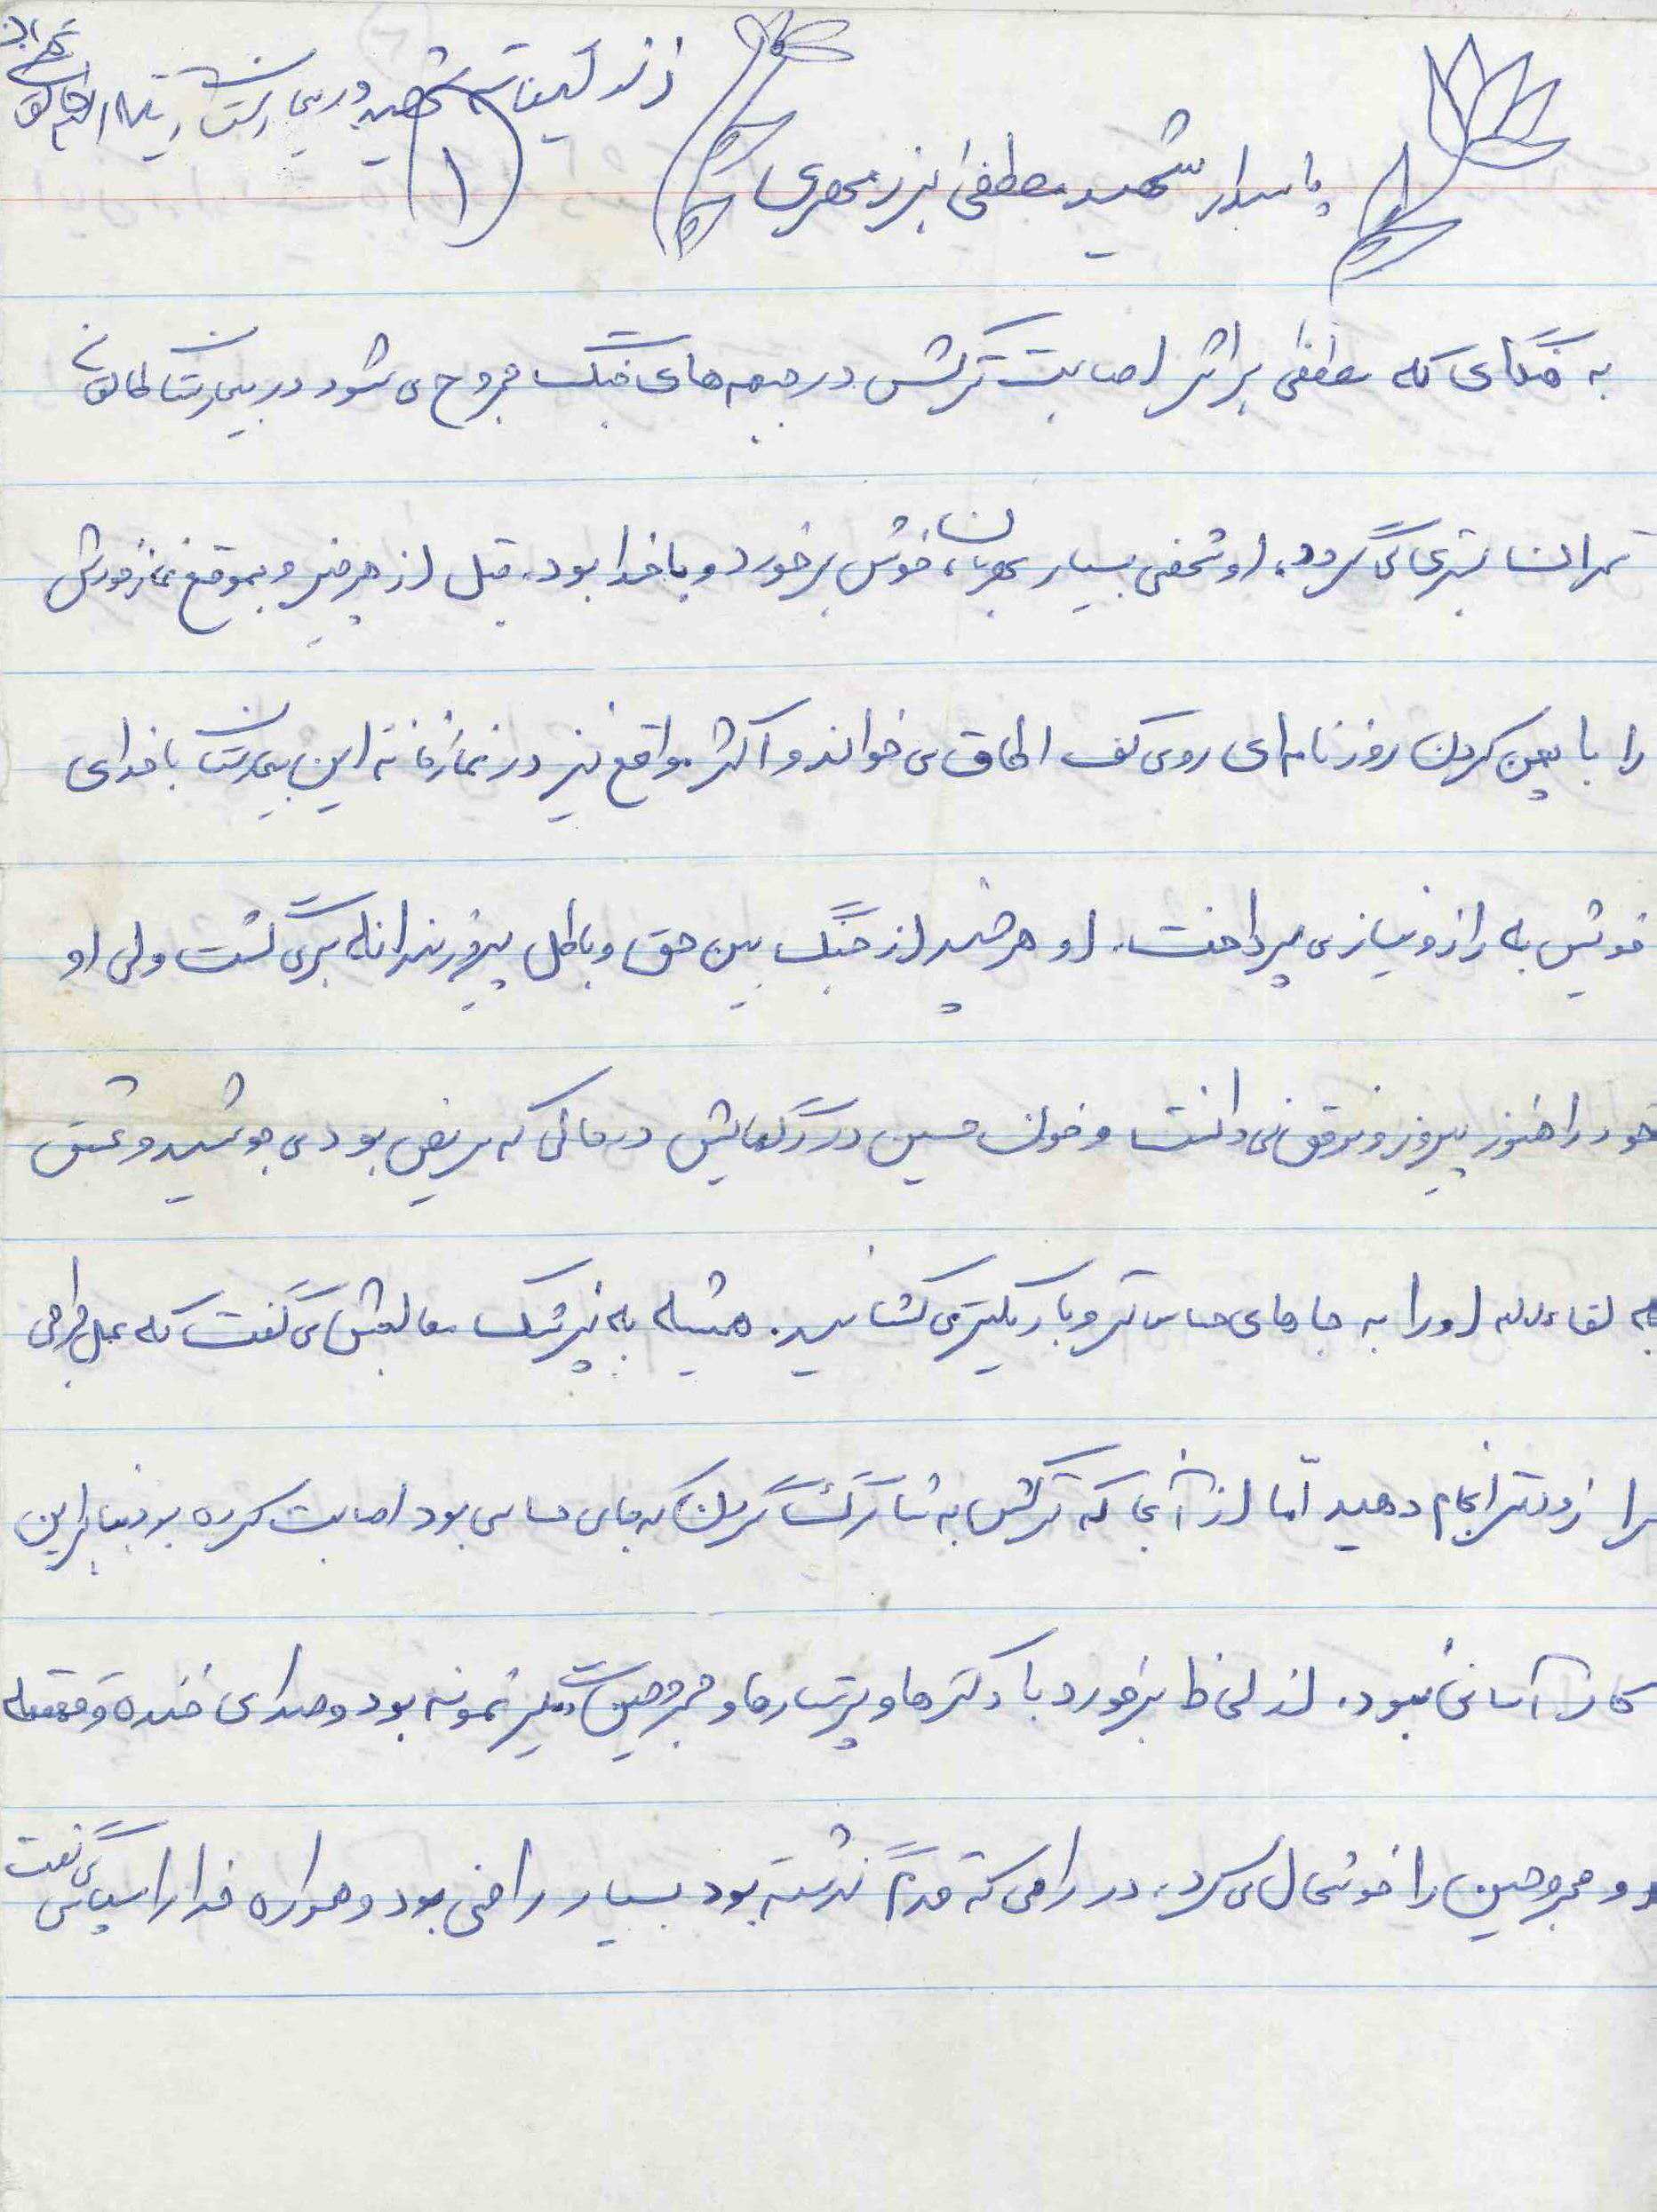 زندگینامه شهید در بیمارستان آیت الله طالقانی تهران
(۱)
پاسدار شهید مصطفی بزرمهری
به هنگامی که مصطفی براثر اصابت ترکش در جبهه های جنگ مجروح می شود در بیمارستان طالقانی
تهران بستری می گردد، او شخصی بسیار مهربان، خوش برخورد و با خدا بود. قبل از هر چیز و بموقع نماز خودش
را با پهن کردن روزنامه ای روی کف اطاق می خواند و اکثر مواقع نیز در نمازخانه این بیمارستان با خدای
خویش به راز و نیاز می پرداخت. او هر چند از جنگ بین حق و باطل پیروزمندانه برمی گشت ولی او
خود را هنوز پیروز و موفق نمی دانست و خون حسین در رگهایش در حالی که مریض بود می جوشید و عشق
به لقاءالله او را به جاهای حساس تر و باریکتر می کشانید. همیشه به پزشک معالجش می گفت که عمل جراحی
مرا زودتر انجام دهید امّا از آنجا که ترکش به شاهرگ گردن که جای حساسی بود اصابت کرده بود بنابراین
کار آسانی نبود. از لحاظ برخورد با دکترها و پرستارها و مجروحین دیگر نمونه بود و صدای خنده و قهقهه
او مجروحین را خوشحال می کرد، در راهی که قدم گذشته بود بسیار راضی بود و همواره خدا را سپاس می گفت